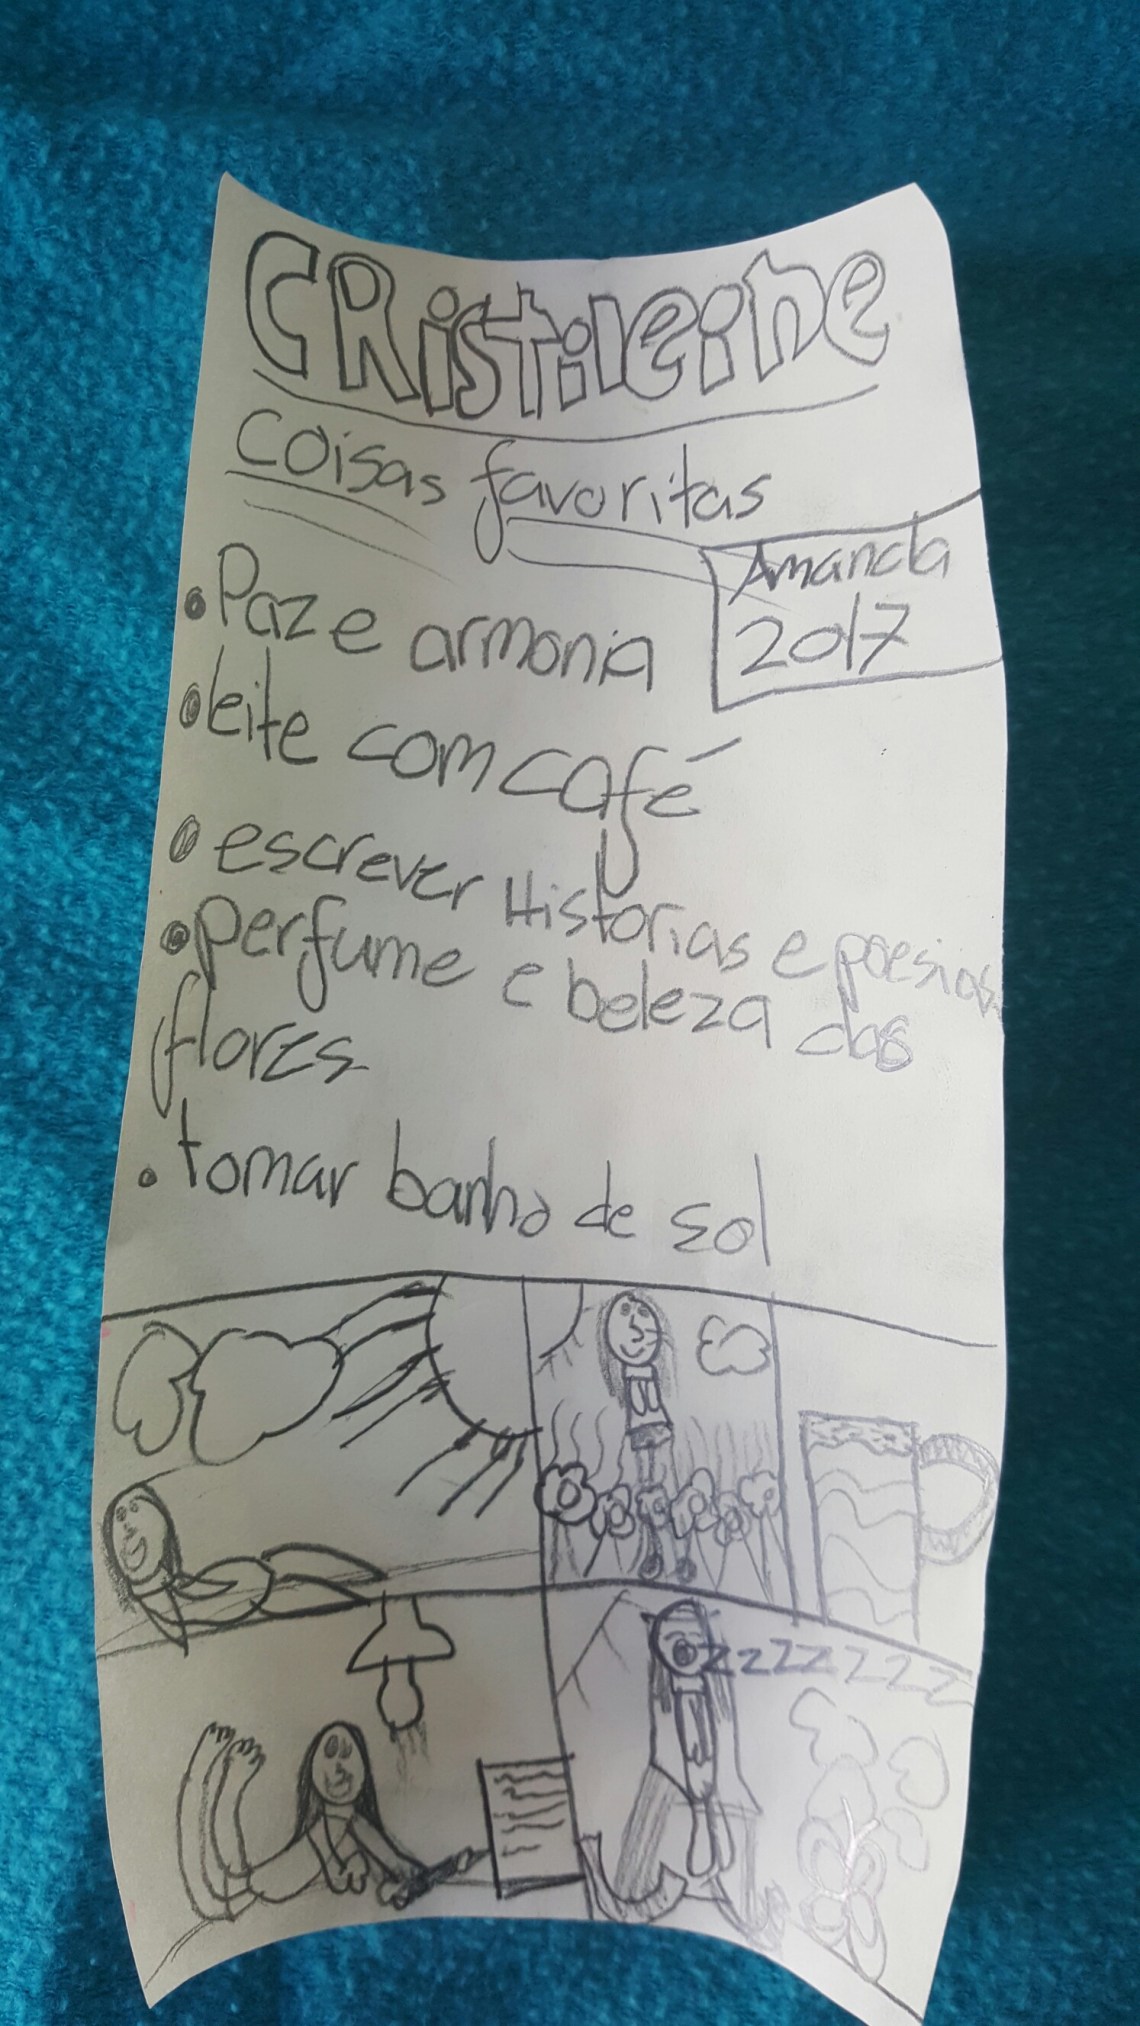 CRistileine
Coisas favoritas
Amanda
2017
• Paz e armonia
• leite com café
• escrever Historias e poesias
• perfume e beleza das
flores
• tomar banho de sol
zzzzzzzz